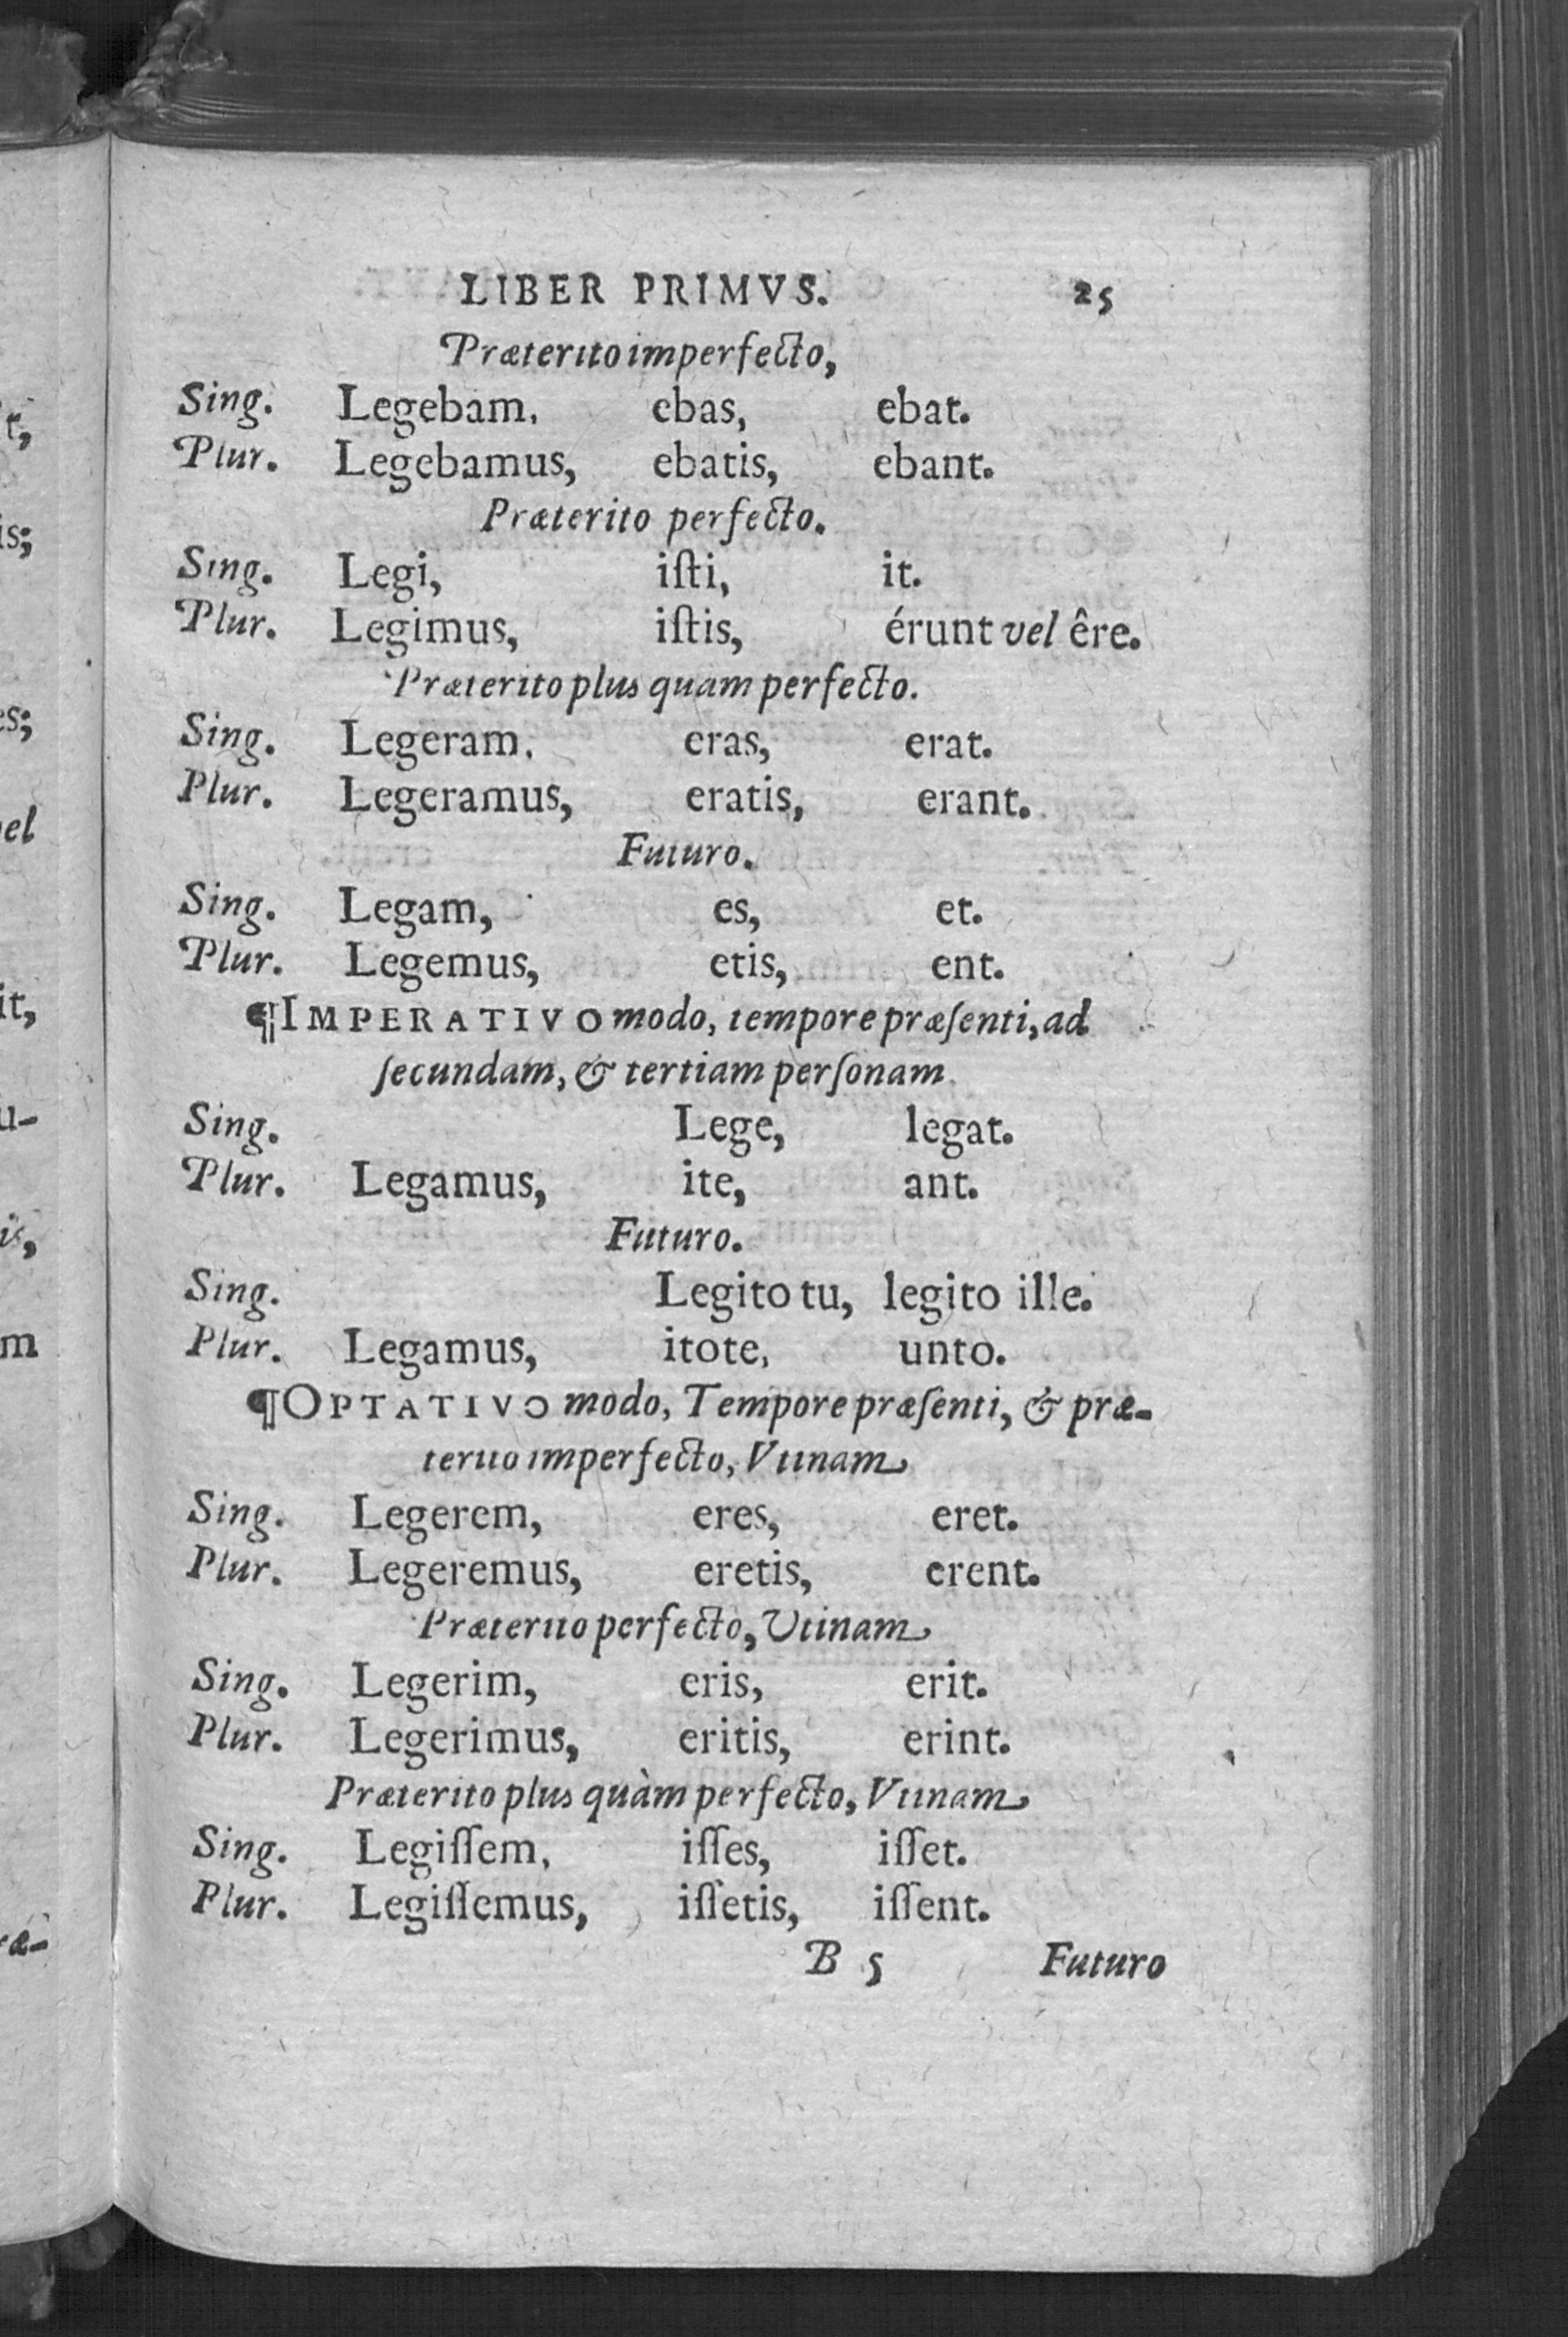 LIBER PRIMVS. 25
Præterito imperfecto,
Sing. Legebam, ebas, ebat.
Plur. Legebamus, ebatis, ebant.
Præterito perfecto.
Sing. Legi, iſti, it.
Plur. Legimus, iſtis, érunt vel êre.
Præterito plus quam perfecto.
Sing. Legeram, eras, erat.
Plur. Legeramus, eratis, erant.
Futuro.
Sing. Legam, es, et.
Plur. Legemus, etis, ent.
¶IMPERATIVO modo, tempore præſenti, ad
ſecundam, & tertiam perſonam.
Sing. Lege, legat.
Plur. Legamus, ite, ant.
Futuro.
Sing. Legito tu, legito ille.
Plur. Legamus, itote, unto.
¶OPTATIVO modo, Tempore præſenti, & præ-
terito imperfecto, Vtinam
Sing. Legerem, eres, eret.
Plur. Legeremus, eretis, erent.
Præterito perfecto, Utinam
Sing. Legerim, eris, erit.
Plur. Legerimus, eritis, erint.
Præterito plus quàm perfecto, Vtinam
Sing. Legiſſem, iſſes, iſſet.
Plur. Legiſſemus, iſſetis, iſſent.
B 5 Futuro